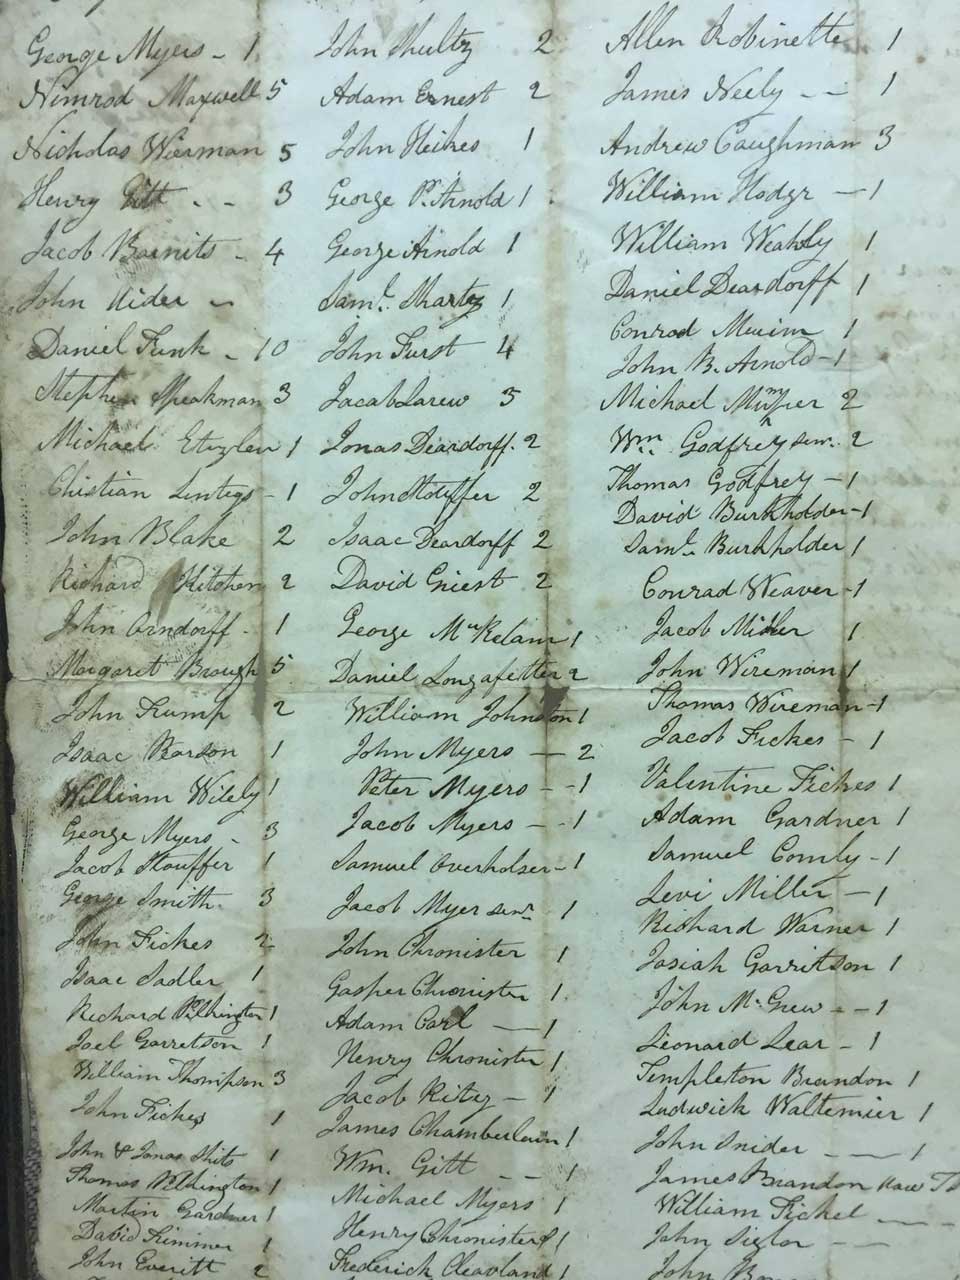 George Myers - 1
Nimrod Maxwell 5
Nicholas Wierman 5
Henry Gitt - - 3
Jacob Barnits - 4
John Rider -
Daniel Funk - 10
Stephen Speakman 3
Michael Etzler 1
Chistian - 1
John Blake 2
Richard Kitchen 2
John Arndorff - 1
Margaret Brough 5
John Trump 2
Isaac Pearson 1
William Wilely 1
George Myers - 3
Jacob Stouffer 1
George Smith - 3
John Fickes 2
Isaac Sadler 1
Richard Pilkington 1
Joel Garretson 1
William Thompson 3
John Fickes 1
John & Jonas Shits 1
Thomas Pilkington 1
Martin Gardner 1
David Kimmer 1
John Everitt 2
John Shultz 2
Adam Ernest 2
John Heikes 1
George P. Arnold 1
George Arnold 1
Saml. Shartz 1
John Furst 4
Jacob Larew 5
Jonas Deardorff. 2
John Stouffer 2
Isaac Deardorff 2
David Griest 2
George 1
Daniel Longafetter 2
William Johnston 1
John Myers — 2
Peter Myers - - 1
Jacob Myers - - 1
Samuel Overholser - 1
Jacob Myer senr. 1
John Chronister - 1
Gasper Chronister 1
Adam Carl — 1
Henry Chronister 1
Jacob Ritzy - 1
James Chamberlain 1
Wm. Gitt - - 1
Michael Myers 1
Henry Chronister 1
Frederick Cleavland 1
Allen Robinette 1
James Neely - - 1
Andrew Caughman 3
William Hodge — 1
William Weakly 1
Daniel Deardorff 1
Conrad 1
John B. Arnold - 1
Michael Mummer 2
Wm. Godfrey senr. 2
Thomas Godfrey - 1
David Burkholder - 1
Saml. Burkholder 1
Conrad Weaver - 1
Jacob Miller 1
John Wireman 1
Thomas Wireman - 1
Jacob Fickes - 1
Valentine Fickes 1
Adam Gardner 1
Samuel Comly - 1
Levi Miller - 1
Richard Warner 1
Josiah Garritson 1
John McGrew - - 1
Leonard Lear - 1
Templeton Brandon 1
Ludwick Waltemier 1
John Snider - — 1
James Brandon
William Fickel — -
John Sigler —
John